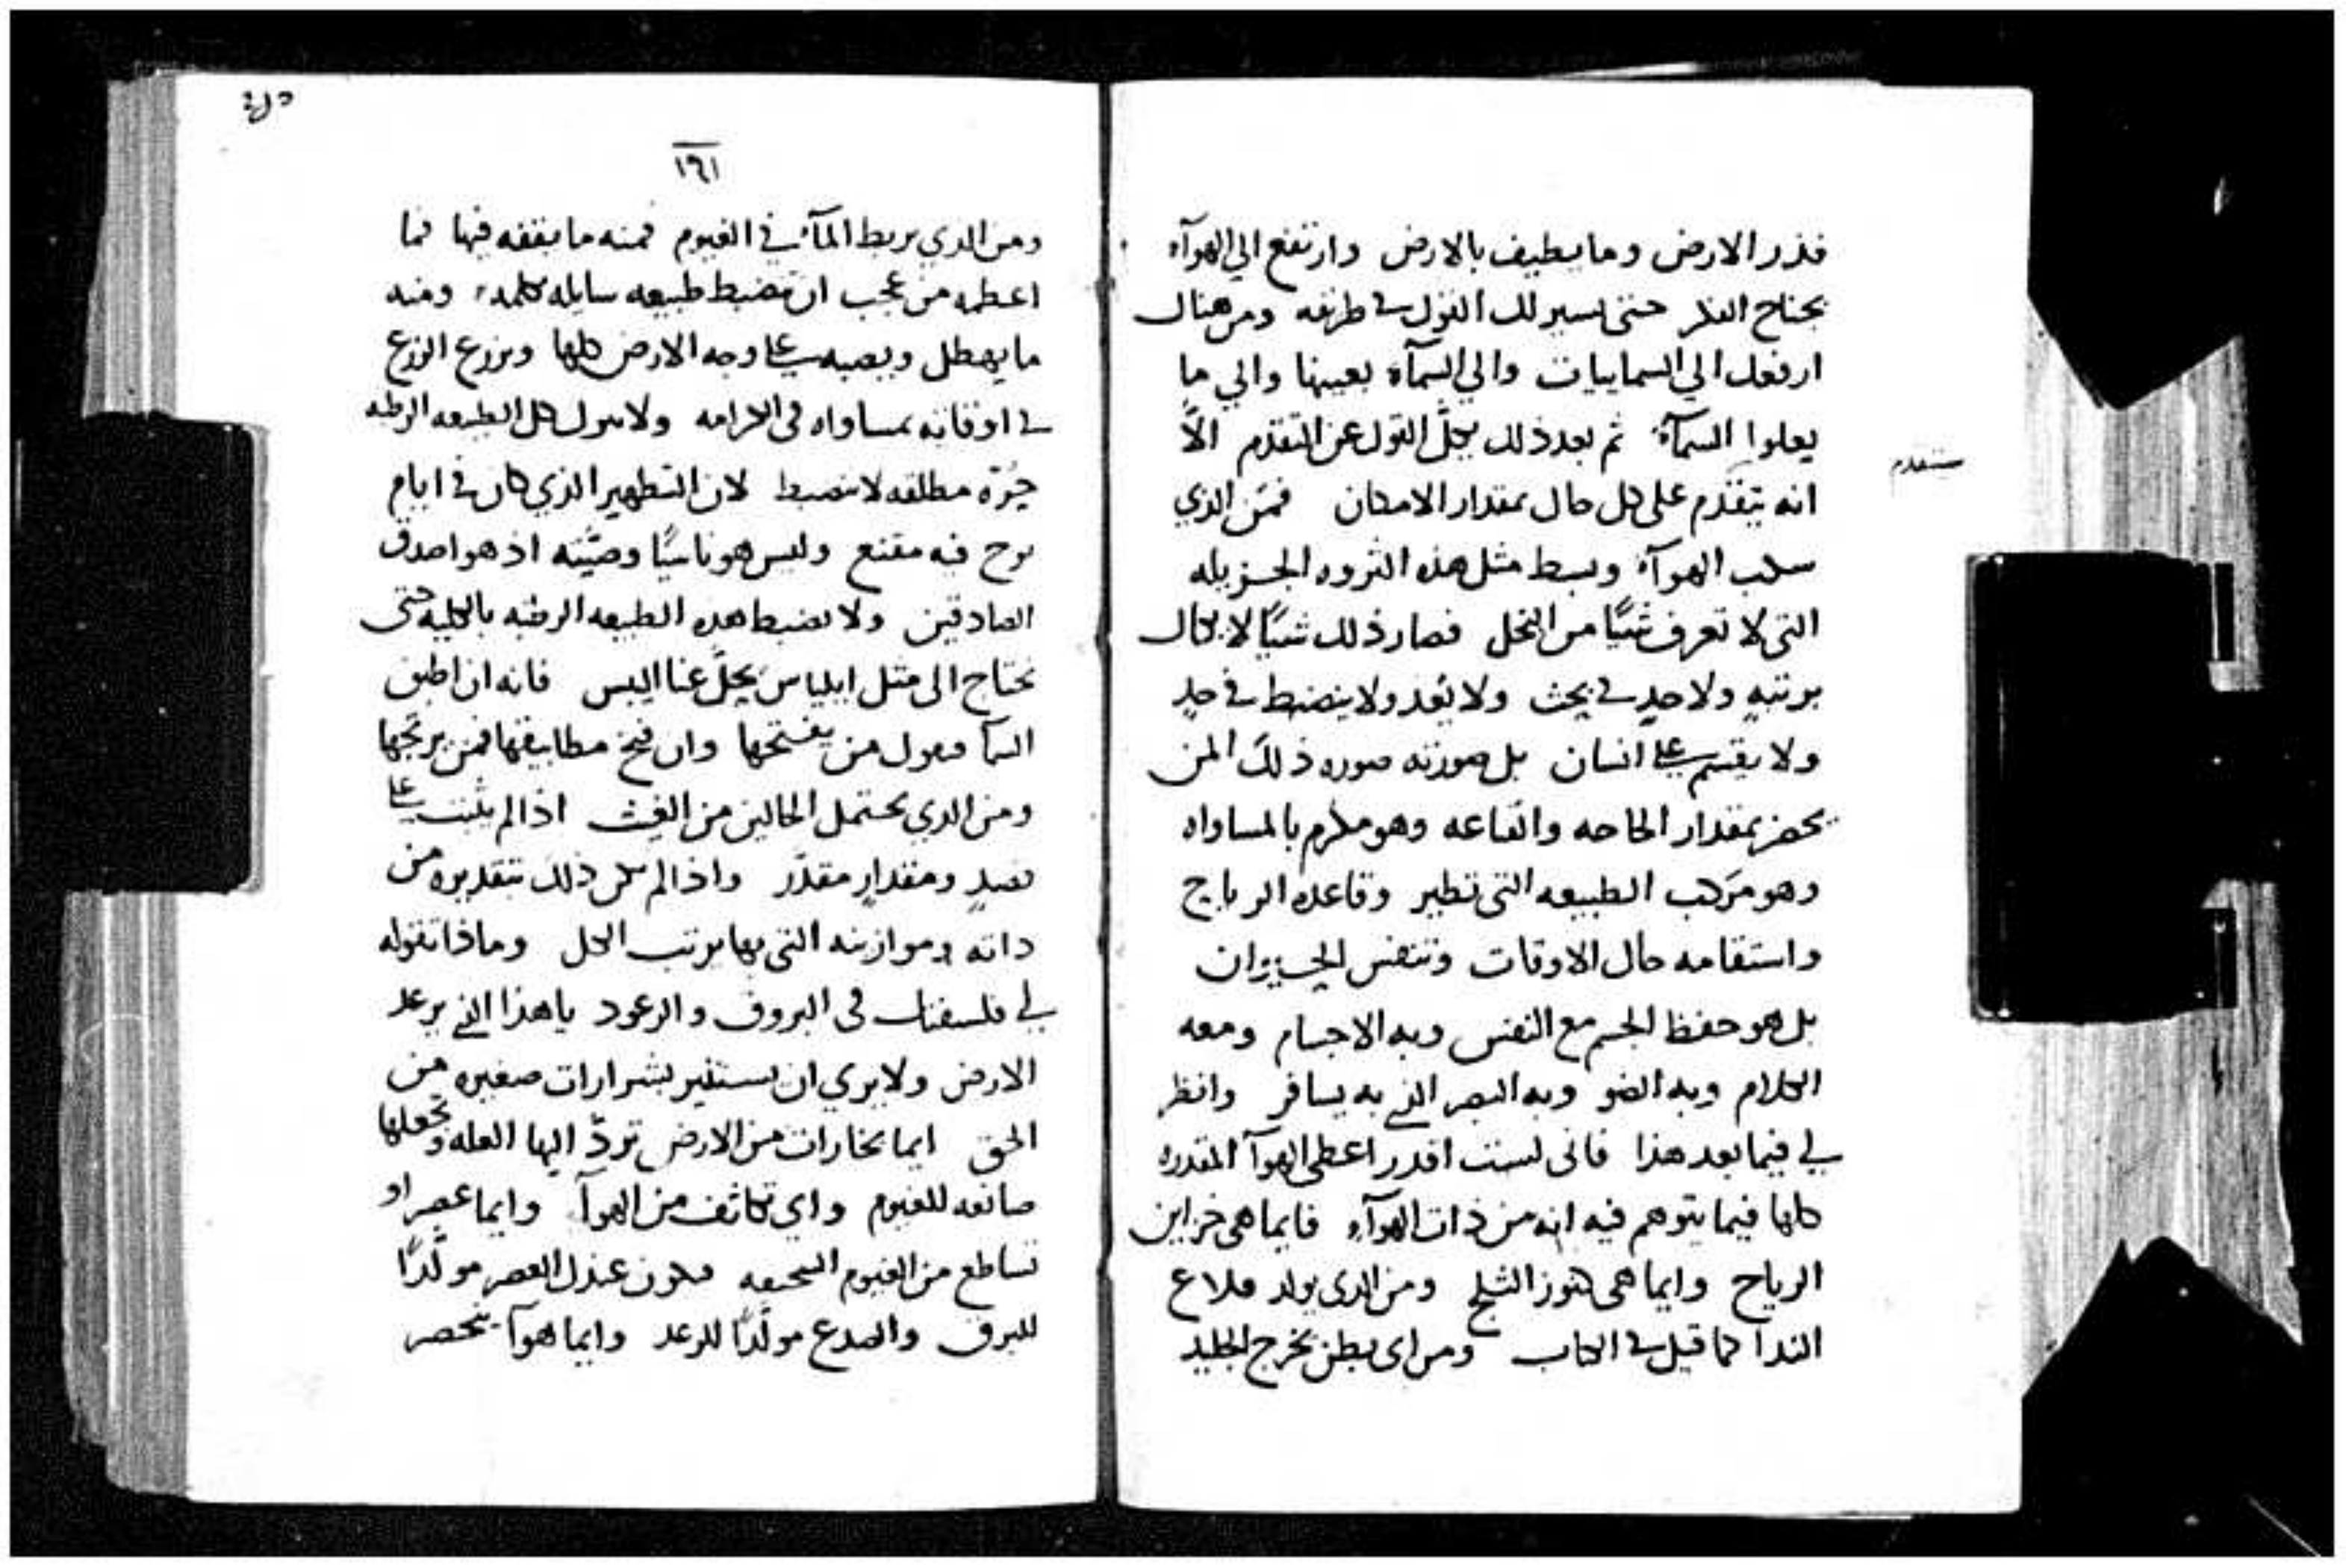 فذر الارض وما يطيف بالارض وارتفع الي الهوآء
بجناح الفكر حتى يسير لك القول في طريقه ومن هناك
ارفعك الي السماييات والي السمآء بعينها والي ما
يعلوا السمآء ثم بعد ذلك يكلّ القول عن التقدم الّا
انه يتقدم على كل حال بمقدار الامكان فمَن الذي
سكب الهوآء وبسط مثل هذه الثروه الجزيله
التي لا تعرف شيًا من البخل فصار ذلك شيًا لا يكال
برتبهٍ ولا حدٍ في بحث ولا يُعد ولا ينضبط في حدٍ
ولا يقسم على انسان بل صورته صوره ذلك المن
يحضر بمقدار الحاجه والقناعه وهو مكرم بالمساواه
وهو مركب الطبيعه التي تطير وقاعده الرياح
واستقامه حال الاوقات وتنفس الحيوان
بل هو حفظ الجسم مع النفس وبه الاجسام ومعه
الكلام وبه الضو وبه البصر الذي به يسافر وانظر
لي فيما بعد هذا فاني لست اقدر اعطي الهوآ المقدره
كلها فيما يتوهم فيه انه من ذات الهوآء فايما هي خزاين
الرياح وايما هي كنوز الثلج ومن الذي يولد
الندا كما قيل في الكتاب ومن اي بطن يخرج الجليد
١٦١
ومن الذي يربط المآء في الغيوم فمنه ما يقفه فيها فما
اعظمه من عجب ان تضبط طبيعه سايله بكلمه ومنه
ما يهطل ويصبه على وجه الارض كلها ويزرع الزرع
في اوقاته بمساواه في الكرامه ولا يترك كل الطبيعه الرطبه
حُرّه مطلقه لا تنضبط لان التطهير الذي كان في ايام
نوح فيه مقنع وليس هو ناسيًا وصيّته اذ هو اصدق
الصادقين ولا يضبط هذه الطبيعه الرطبه بالكليه حتى
نحتاج الى مثل ايلياس يحلّ عنا اليبس فانه ان اطبق
السمآ فيقول من يفتحها وان فتح مطابيقها فمن يرتجها
ومن الذي يحتمل الحالين من الغيث اذا لم يثبت على
ومقدارٍ مقدّر واذا لم يكن ذلك بتقديره من
ذاته وموازينه التي بها يرتب الكل وماذا تقوله
لي فلسفتك في البروق والرعود يا هذا الذي يرعد
الارض ولا يري ان يستنير بشرارات صغيره من
الحق ايما بخارات من الارض تردّ اليها العله وتجعلها
صانعه للغيوم واي تكاثف من الهوآ وايما عصر او
تساطع من الغيوم السحيقه فيكون عندك العصر مولّدًا
للبرق والصدع مولّدًا للرعد وايما هوآ ينحصر